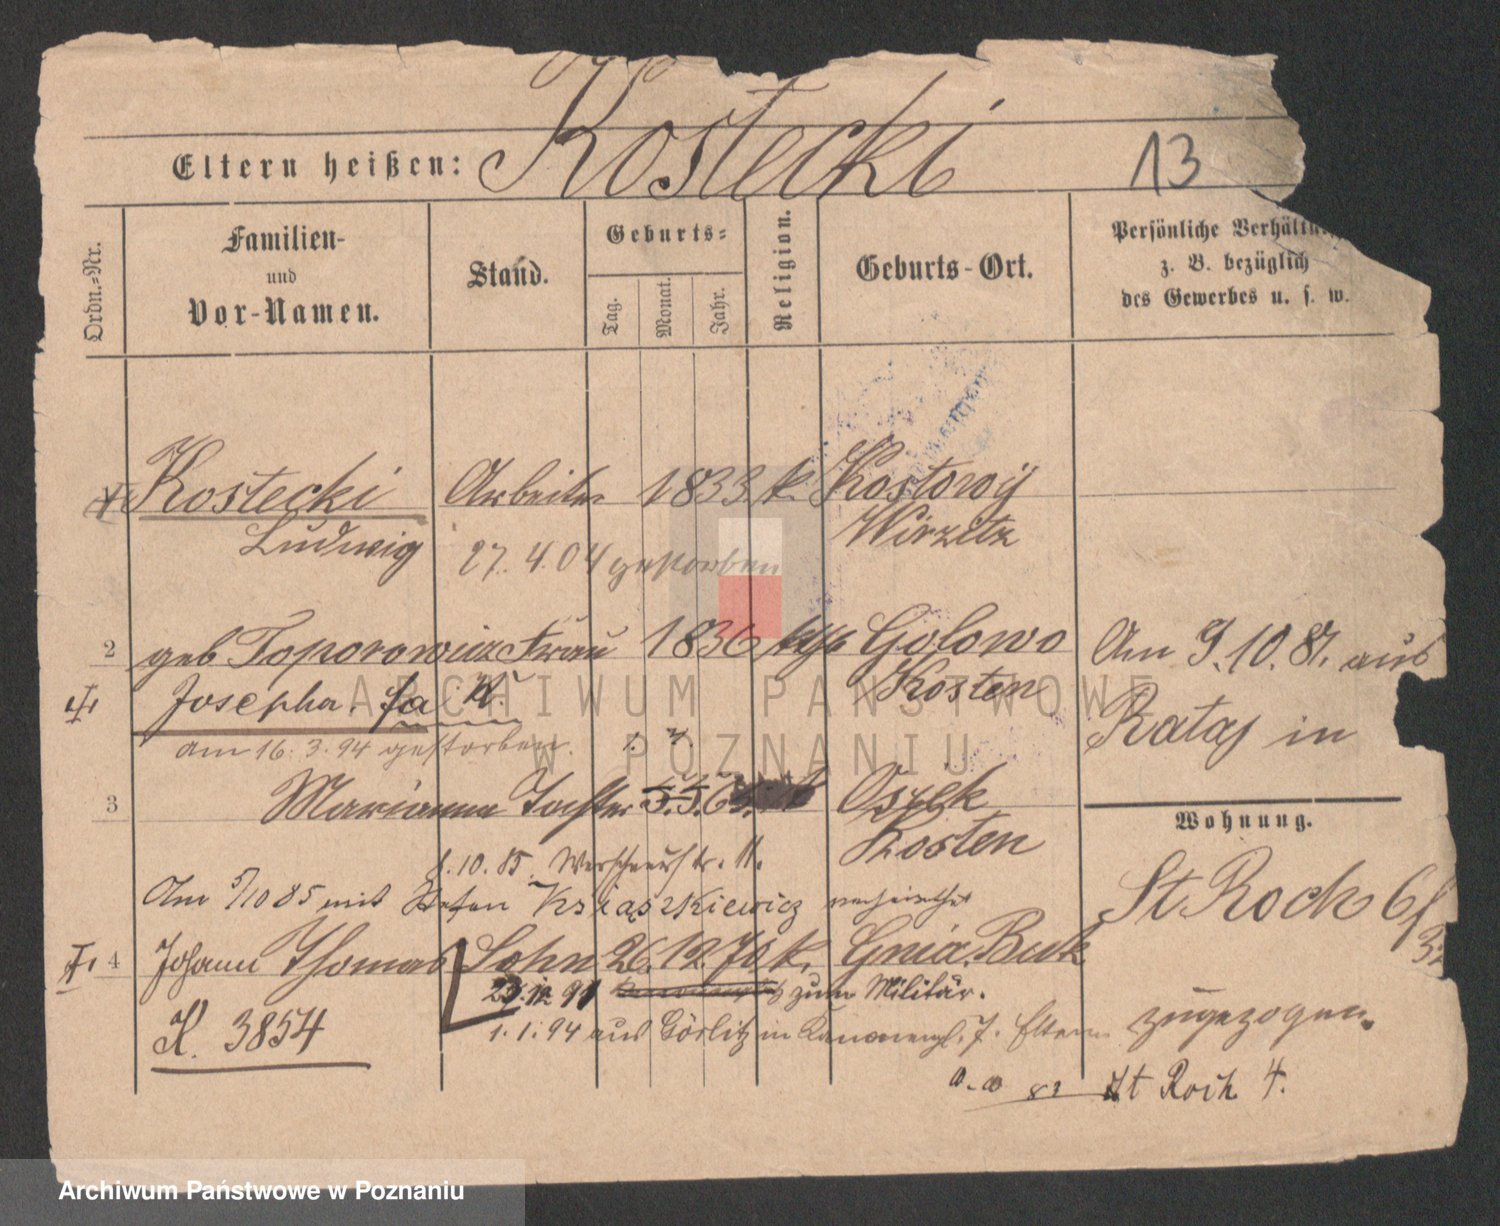 Kostecki
13
Eltern heißen:
Ordn.-Nr.
Familien-
und
Vor-Namen.
Stand.
Geburts-
Tag.
Monat.
Jahr.
Religion.
Geburts-Ort.
Persönliche
z. B. bezüglich
des Gewerbes u. s. w.
Kostecki Arbeiter 1833. k. Kostowy
Ludwig Wirzitz
27. 4. 04 gestorben
2 geb Toporowicz Frau 1836 Golowo
Am 9. 10. 81. aus
Josepha Kosten
Rataj in
am 16. 3. 94 gestorben.
3 Marianna Tochter Osiek
Kosten
Wohnung.
10. 85. 11.
St Roch 6
Am 5/10 85 mit Ksiaszkiewicz verheirathet
4 Johann Thomas Sohn 26. 12. 70 k. Gnia. Buk
12 91 zum Militär.
K. 3854
1. 1. 94 aus Görlitz in 7. Eltern
zugezogen.
St Roch 4.
ARCHIWUM PAŃSTWOWE
W POZNANIU
Archiwum Państwowe w Poznaniu